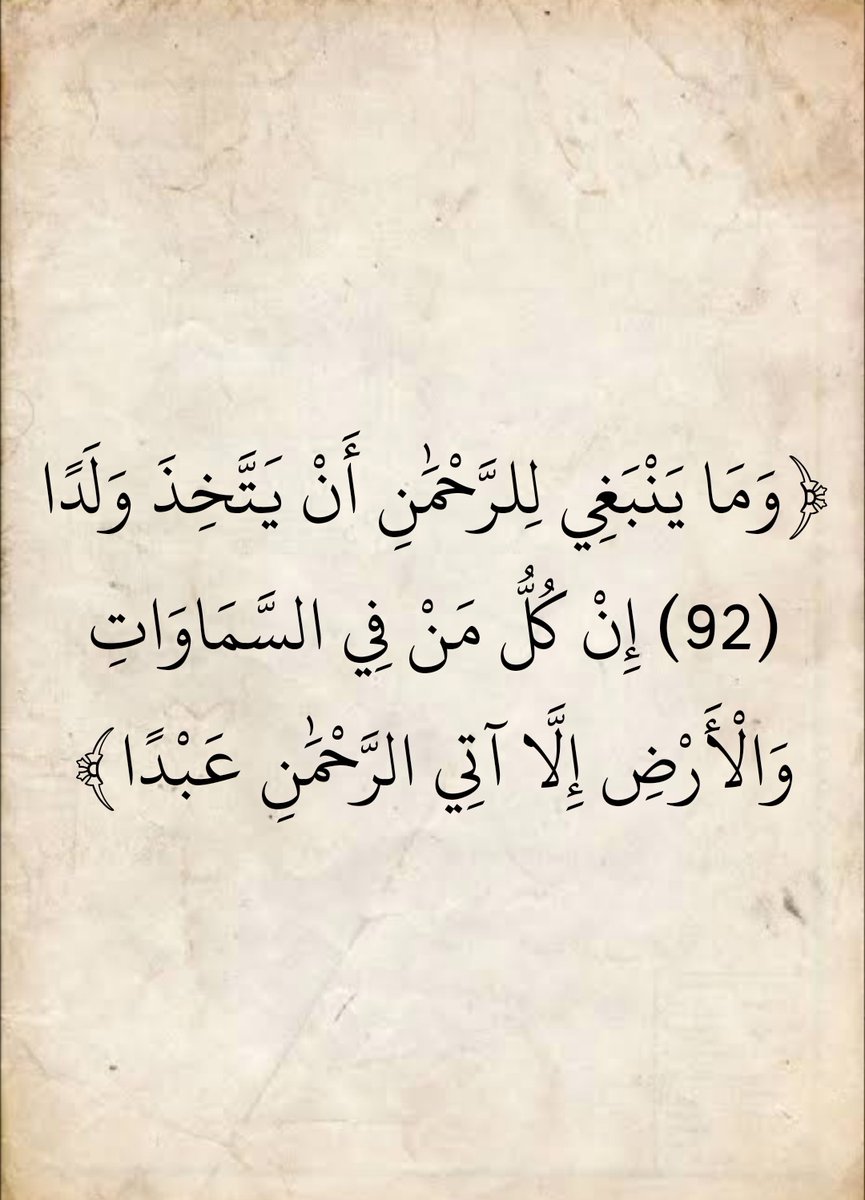 ﴿وَمَا يَنْبَغِي لِلرَّحْمَٰنِ أَنْ يَتَّخِذَ وَلَدًا
(92) إِنْ كُلُّ مَنْ فِي السَّمَاوَاتِ
وَالْأَرْضِ إِلَّا آتِي الرَّحْمَٰنِ عَبْدًا﴾